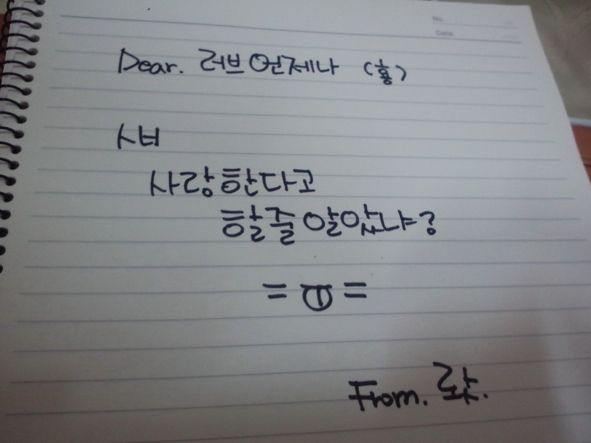 No.
Date
Dear. 러브 언제나 (흥)
사벼
사랑한다고
할줄 알았냐?
= ㅂ =
From. 랒.